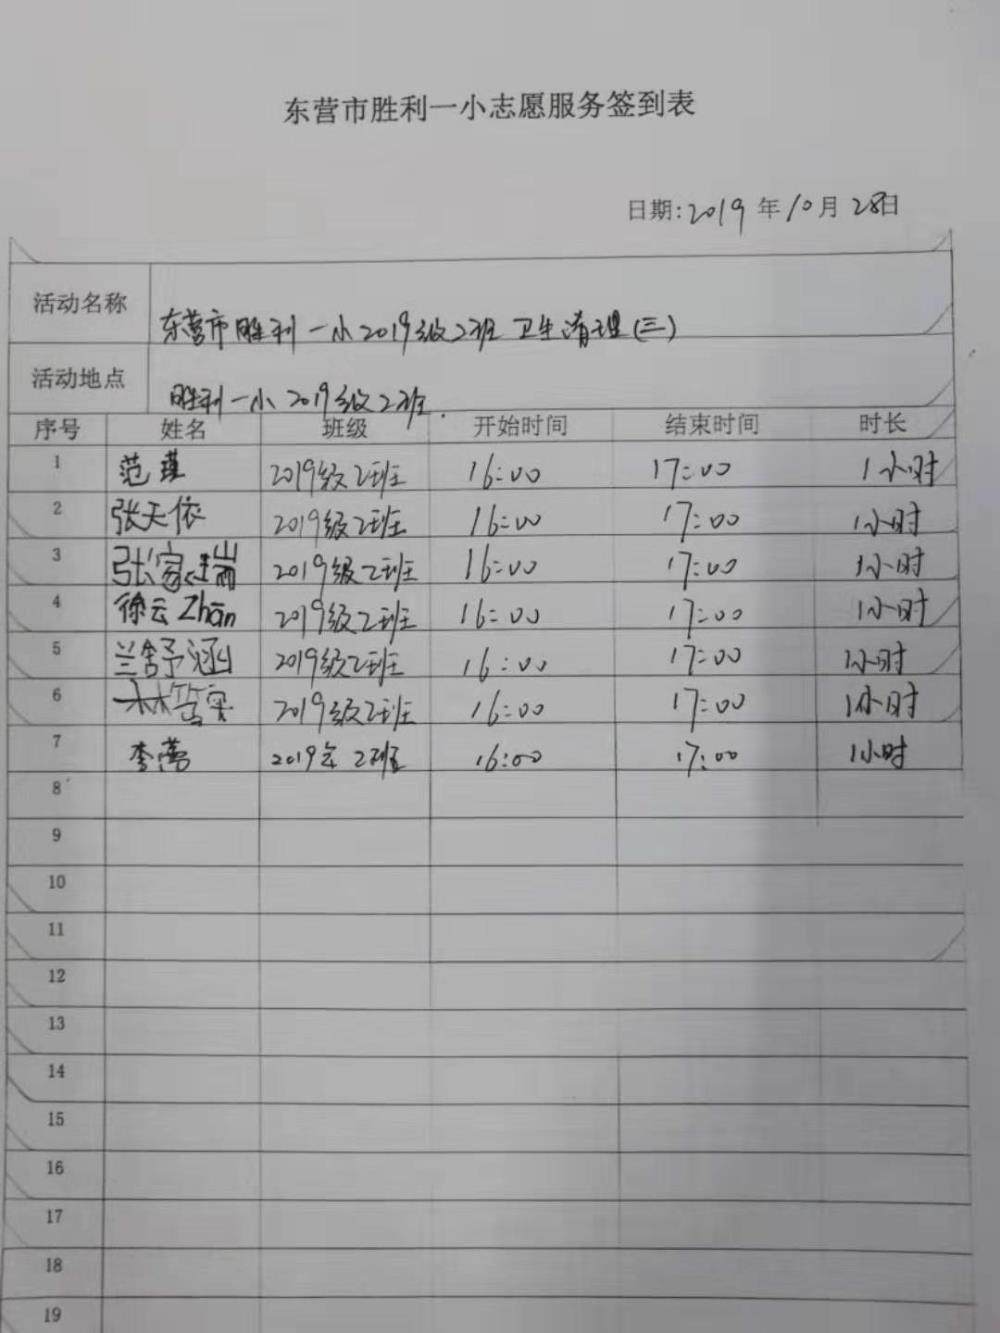 东营市胜利一小志愿服务签到表
日期:2019年10月28日
活动名称 东营市胜利一小2019级2班卫生清理(三)
活动地点 胜利一小2019级2班.
序号 姓名 班级 开始时间 结束时间 时长
1 范瑾 2019级2班 16:00 17:00 1小时
2 张天依 2019级2班 16:00 17:00 1小时
3 张家瑞 2019级2班 16:00 17:00 1小时
4 徐云Zhān 2019级2班 16:00 17:00 1小时
5 兰舒涵 2019级2班 16:00 17:00 1小时
6 2019级2班 16:00 17:00 1小时
7 李莺 2019年2班 16:00 17:00 1小时
8
9
10
11
12
13
14
15
16
17
18
19